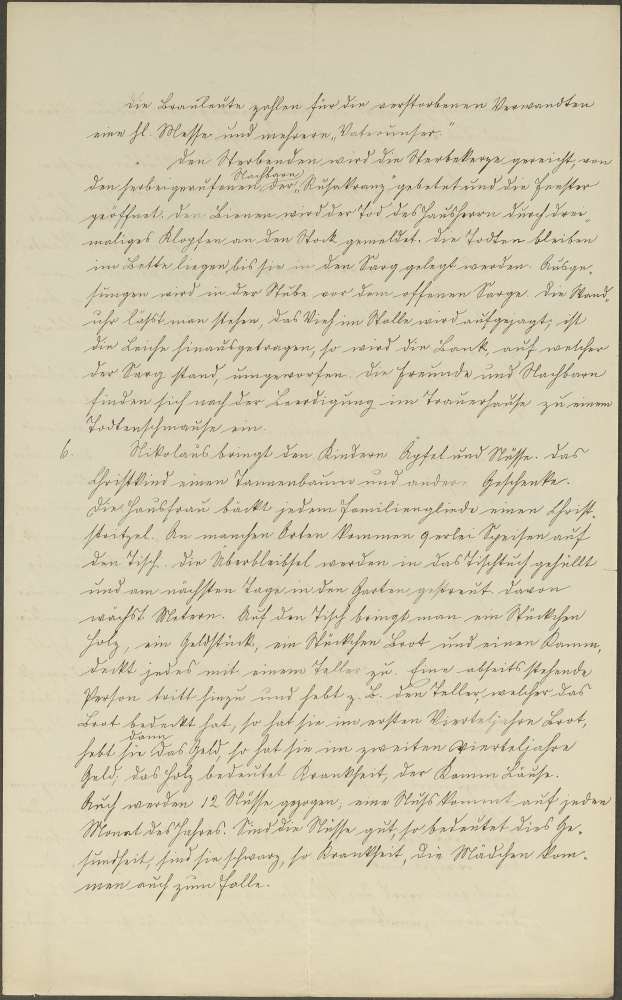 Die Brautleute zahlen für die verstorbenen Verwandten
eine hl. Messe und mehrere „Vaterunser."
Den Sterbenden wird die Sterbekerze gereicht, von
Nachbarn
den herbeigerufenen der „Rosenkranz" gebetet und die Fenster
geöffnet. Den Bienen wird der Tod des Hausherrn durch drei-
maliges Klopfen an den Stock gemeldet. Die Todten bleiben
im Bette liegen, bis sie in den Sarg gelegt werden. Ausge-
sungen wird in der Stube vor dem offenen Sarge. Die Wand-
uhr läßt man stehen, das Vieh im Stalle wird aufgejagt; ist
die Leiche hinausgetragen, so wird die Bank, auf welcher
der Sarg stand, umgeworfen. Die Freunde und Nachbarn
finden sich nach der Beerdigung im Trauerhause zu einem
Todtenschmause ein.
6. Nikolaus bringt den Kindern Äpfel und Nüsse. Das
Christkind einen Tannenbaum und andere Geschenke.
Die Hausfrau bäckt jedem Familiengliede einen Christ-
streitzel. An manchen Orten kommen 9erlei Speisen auf
den Tisch. Die Überbleibsel werden in das Tischtuch gehüllt
und am nächsten Tage in den Garten gestreut. Davon
wächst Metern. Auf den Tisch bringt man ein Stückchen
Holz, ein Geldstück, ein Stückchen Brot und einen Kamm,
deckt jedes mit einem Teller zu. Eine abseits stehende
Person tritt hinzu und hebt z. B. den Teller, welcher das
Brot bedeckt hat, so hat sie im ersten Vierteljahre Brot,
dann
hebt sie das Geld, so hat sie im zweiten Vierteljahre
Geld; das Holz bedeutet Krankheit, der Kamm Läuse.
Auch werden 12 Nüsse gezogen; eine Nuß kommt auf jeden
Monat des Jahres. Sind die Nüsse gut, so bedeutet dies Ge-
sundheit, sind sie schwarz, so Krankheit, die Mädchen kom-
men auch zum Falle.